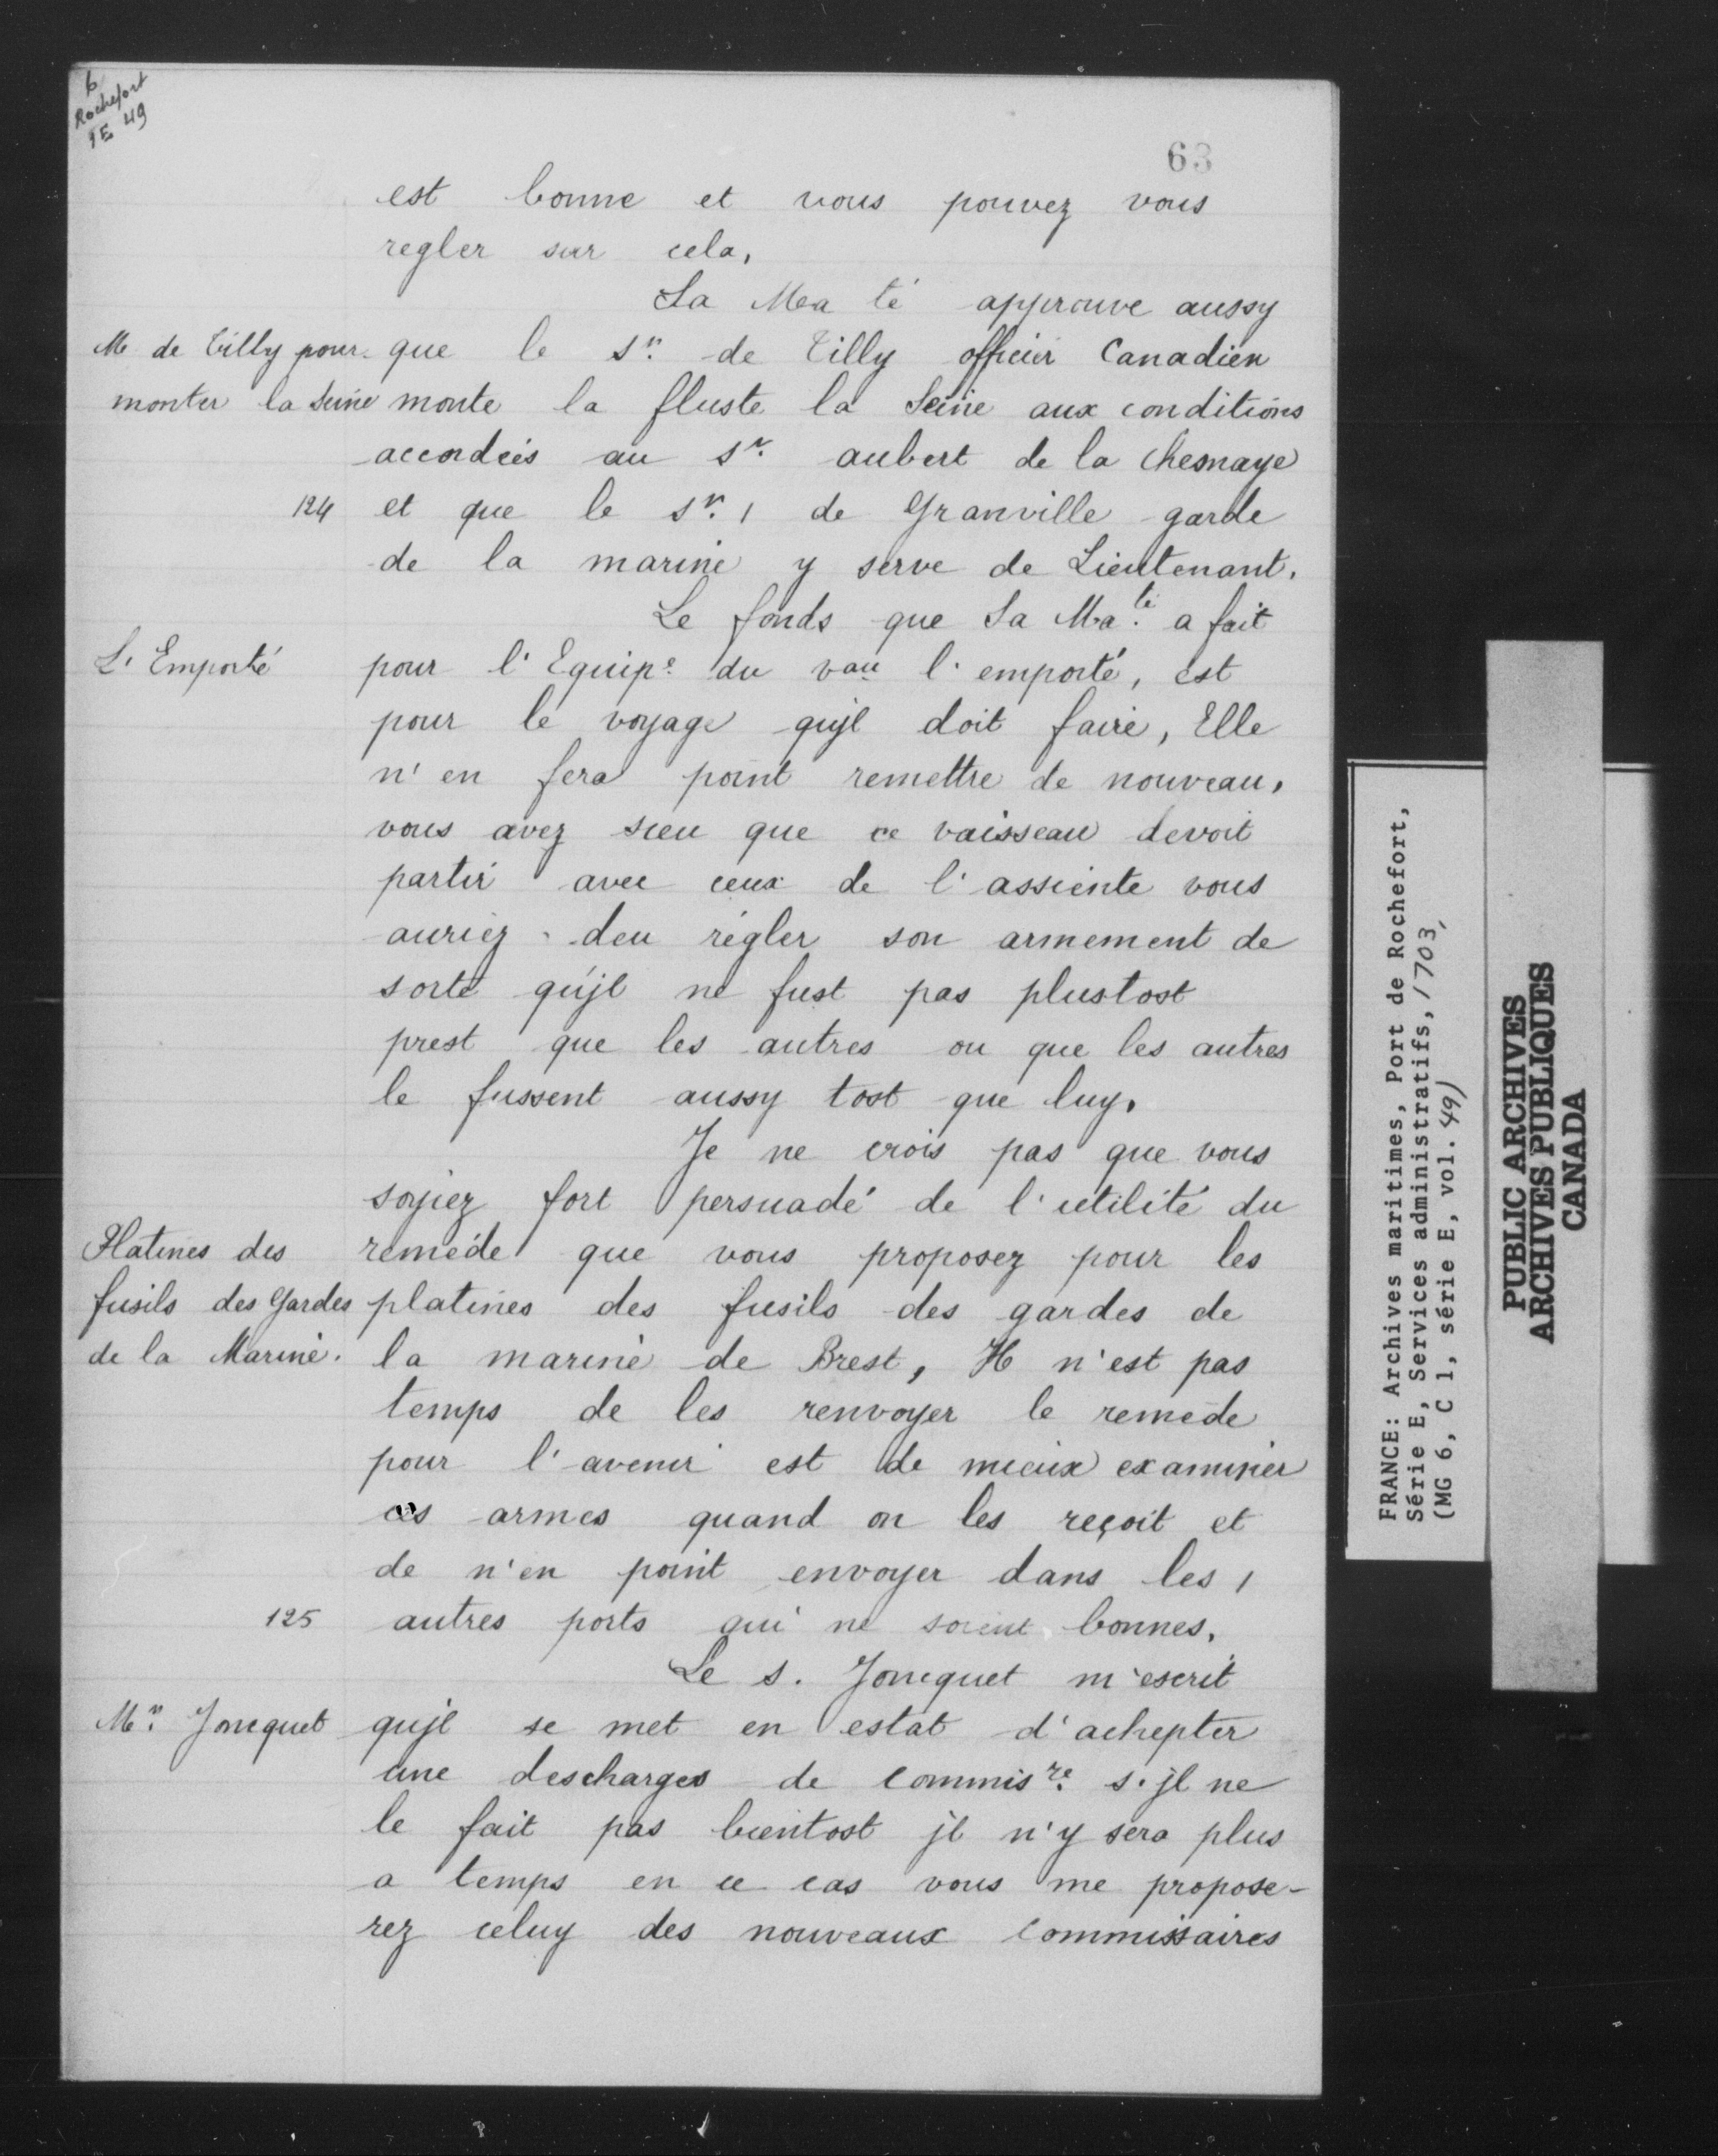 6
Rochefort
1E 49
63
est bonne et vous pouvez vous
regler sur cela,
Sa Ma té approuve aussy
M de Tilly pour que le Sr. de Tilly officier Canadien
monter la Seine monte la fluste la Seine aux conditions
accordées au Sr. aubert de la Chesnaye
124 et que le Sr. / de Granville garde
de la marine y serve de Lieutenant.
Le fonds que Sa Ma.té a fait
L'Emporté pour l'Equipe. du vau l'emporté, est
pour le voyage qu'jl doit faire, Elle
n'en fera point remettre de nouveau,
vous avez sceu que ce vaisseau devoit
partir avec ceux de l'assiente vous
auriez deu régler son armement de
sorte qu'jl ne fust pas plustost
prest que les autres ou que les autres
le fussent aussy tost que luy.
Je ne crois pas que vous
soyiez fort persuadé de l'utilité du
Platines des remède que vous proposez pour les
fusils des Gardes platines des fusils des gardes de
de la Marine. la marine de Brest, Il n'est pas
temps de les renvoyer le remede
pour l'avenir est de mieux examiner
ces armes quand on les reçoit et
de n'en point envoyer dans les /
125 autres ports qui ne soient bonnes.
Le s. Joncquet m'escrit
Mr. Joncquet qu'jl se met en estat d'achepter
une descharges de Commisre. s'jl ne
le fait pas bientost jl n'y sera plus
a temps en ce cas vous me propose-
rez celuy des nouveaux Commissaires
FRANCE: Archives maritimes, Port de Rochefort,
Série E, Services administratifs, 1703,
(MG 6, C 1, série E, vol. 49)
PUBLIC ARCHIVES
ARCHIVES PUBLIQUES
CANADA